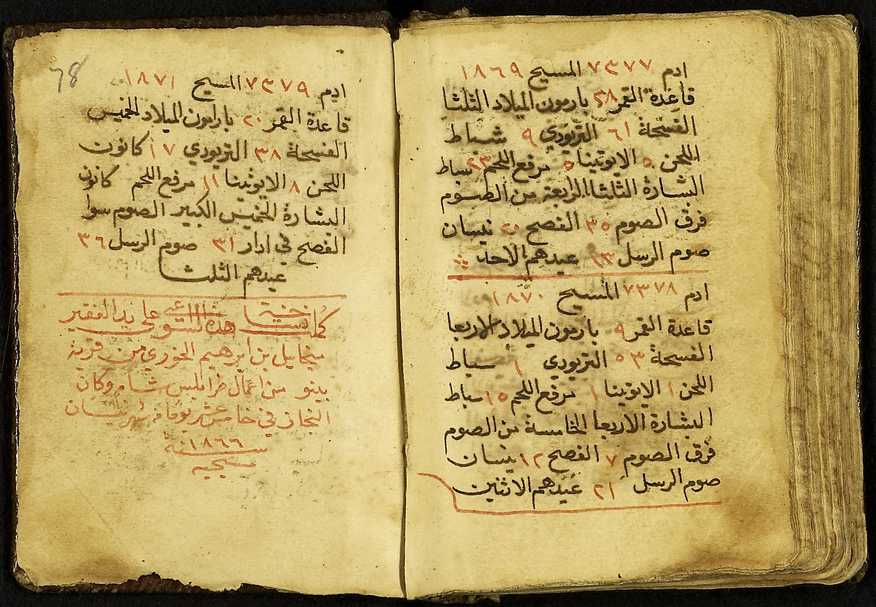 ادم ٧٣٧٧ المسيح ١٨٦٩
قاعدة القمر ٢٨ بارمون الميلاد الثلثا
الفسحة ٦١ التريودي ٩ شباط
اللحن ٥ الايوتينا ٥ مرفع اللحم ٢٣ شباط
البشارة الثلثا الرابعة من الصوم
فرق الصوم ٣٥ الفصح ٢٠ نيسان
صوم الرسل ١٣ عيدهم الاحد
ادم ٧٣٧٨ المسيح ١٨٧٠
قاعدة القمر ٩ بارمون الميلاد الاربعا
الفسحة ٥٣ التريودي ١ شباط
اللحن ١ الايوتينا ١ مرفع اللحم ١٥ شباط
البشارة الاربعا الخامسة من الصوم
فرق الصوم ٧ الفصح ١٢ نيسان
صوم الرسل ٢١ عيدهم الاثنين
78
ادم ٧٣٧٩ المسيح ١٨٧١
قاعدة القمر ٢٠ بارمون الميلاد الخميس
الفسحة ٣٨ التريودي ١٧ كانون
اللحن ٨ الايوتينا ١١ مرفع اللحم كانون
البشارة الخميس الكبير الصوم سوا
الفصح في ادار ٣١ صوم الرسل ٣٦
عيدهم الثلثا
كملت هذه علي يد الفقير
ميخايل بن ابرهيم الخوري من قرية
بينو من اعمال طرابلس شام وكان
النجاز في خامس عشر شهر نيسان
سنة ١٨٦٦
مسيحيه